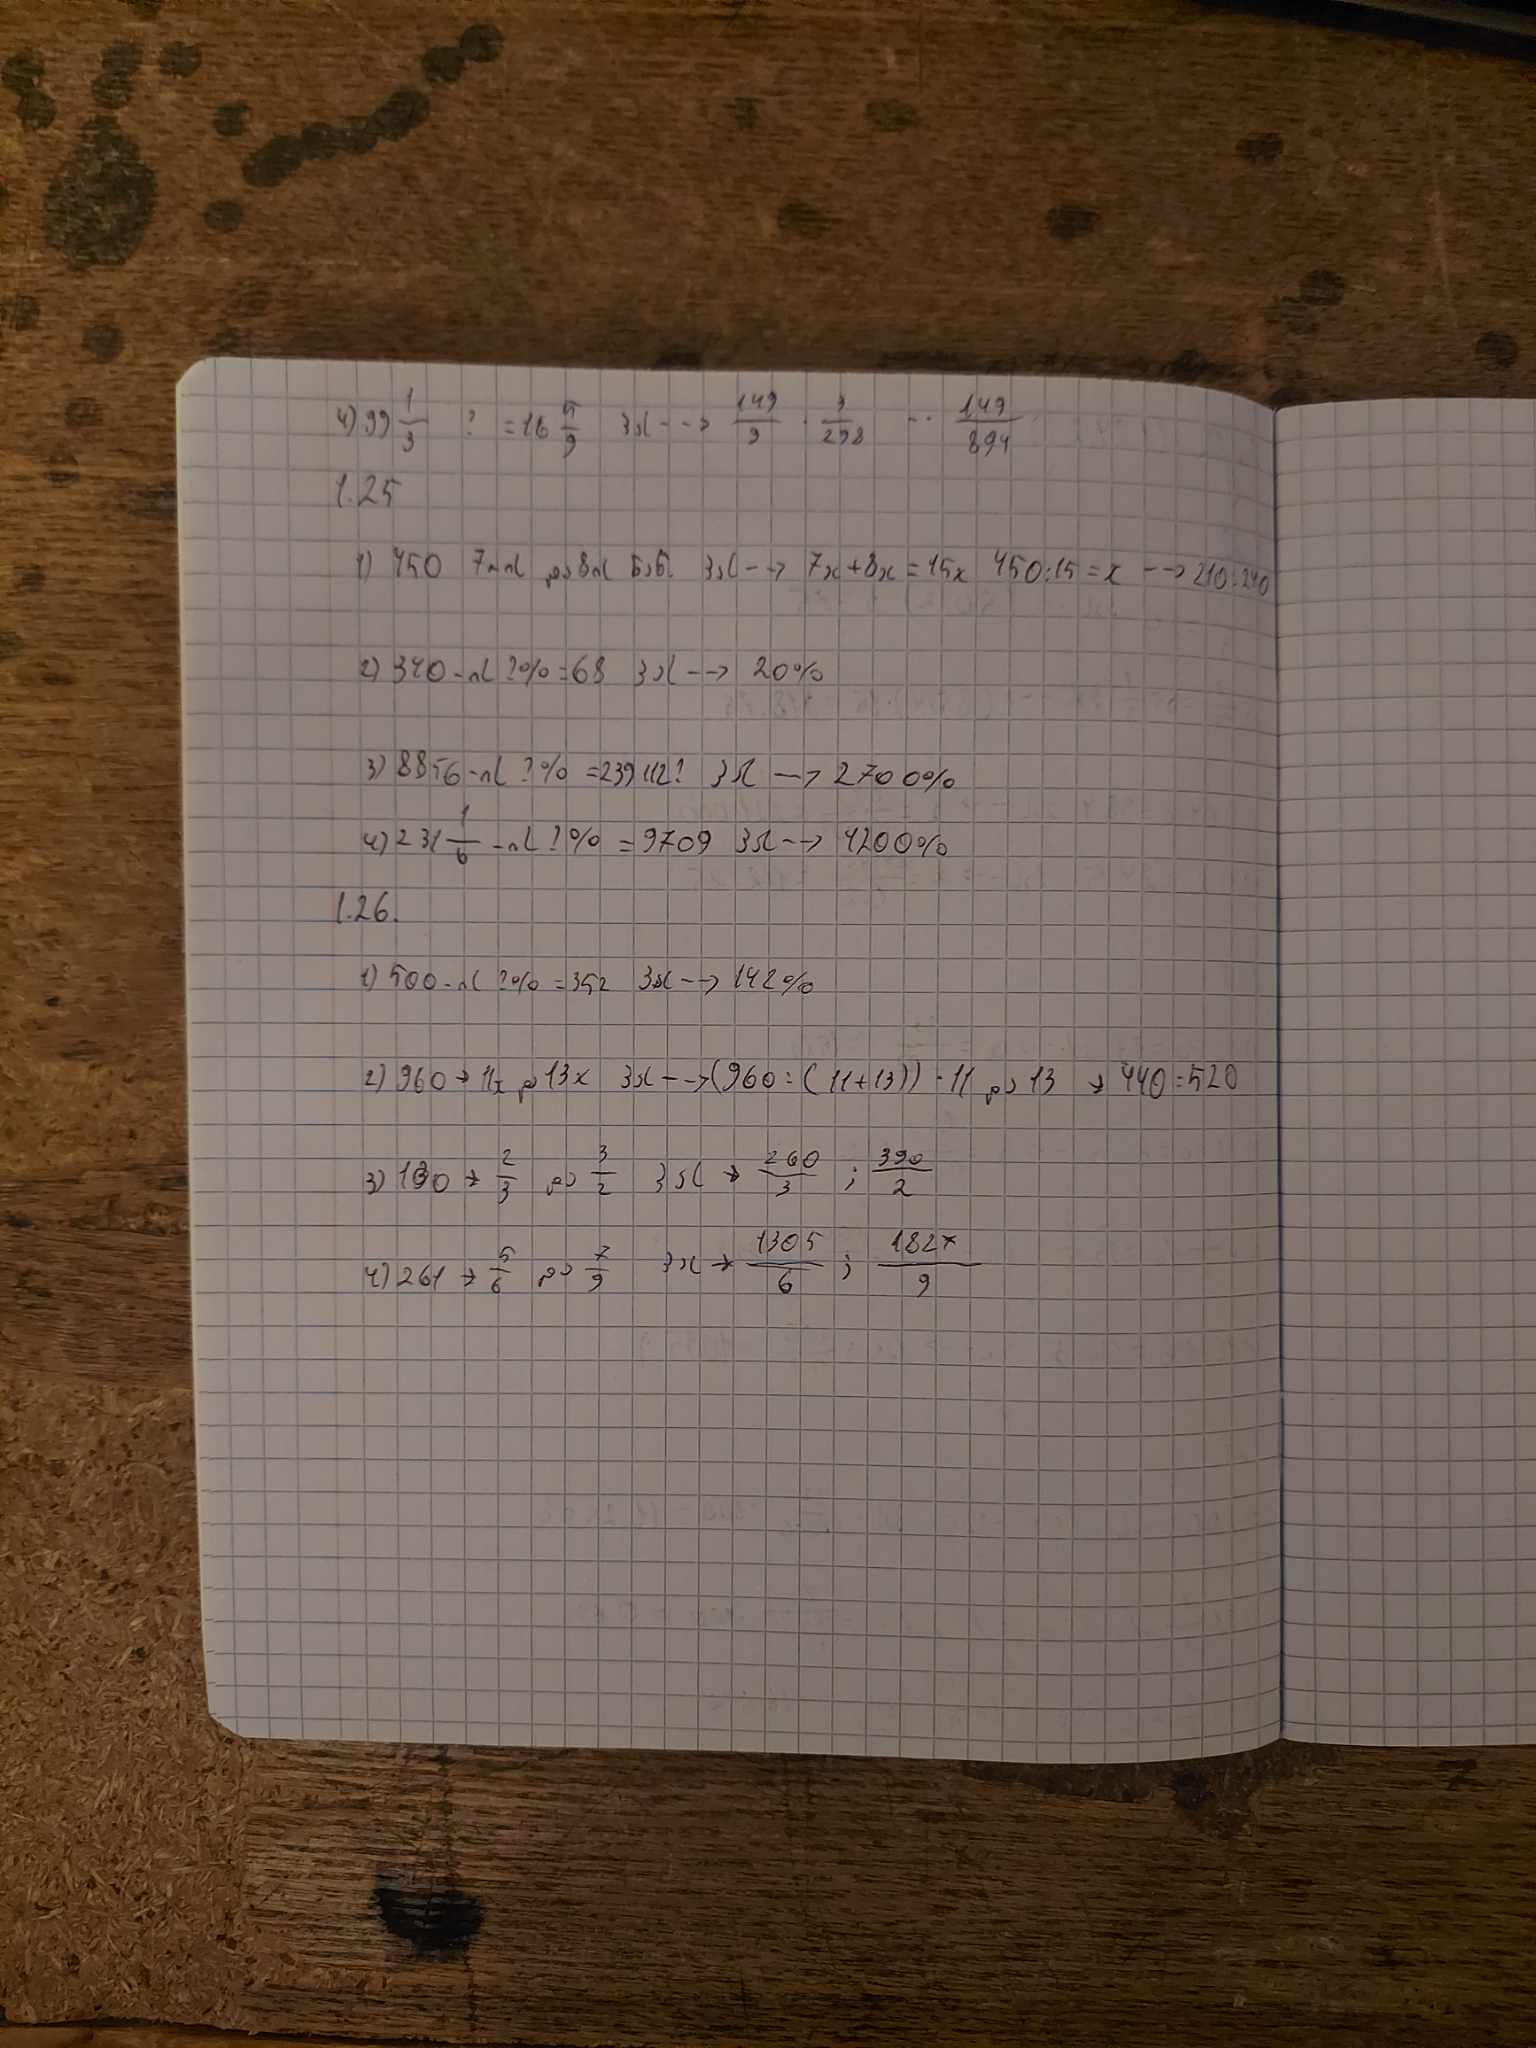 4) 99 1/3 ? = 16 5/9 → 149/9 · 3/298 = 149/894
1.25
1) 450 7x 8x → 7x+8x=15x 450:15=x → 210:240
2) 340 ?%=68 → 20%
3) 8856 ?%=239112? → 2700%
4) 231 1/6 ?%=9709 → 4200%
1.26.
1) 500 ?%=352 → 142%
2) 960 → 11x და 13x → (960:(11+13))·11 და 13 → 440:520
3) 130 → 2/3 და 3/2 → 260/3 ; 390/2
4) 261 → 5/6 და 7/9 → 1305/6 ; 1827/9